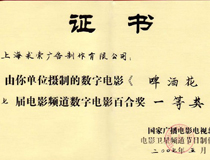 证书
上海求索广告制作有限公司：
由你单位摄制的数字电影《 啤酒花
七 届电影频道数字电影百合奖 一等类
国家广播电影电视总
电影卫星频道节目制
二〇〇七年五月